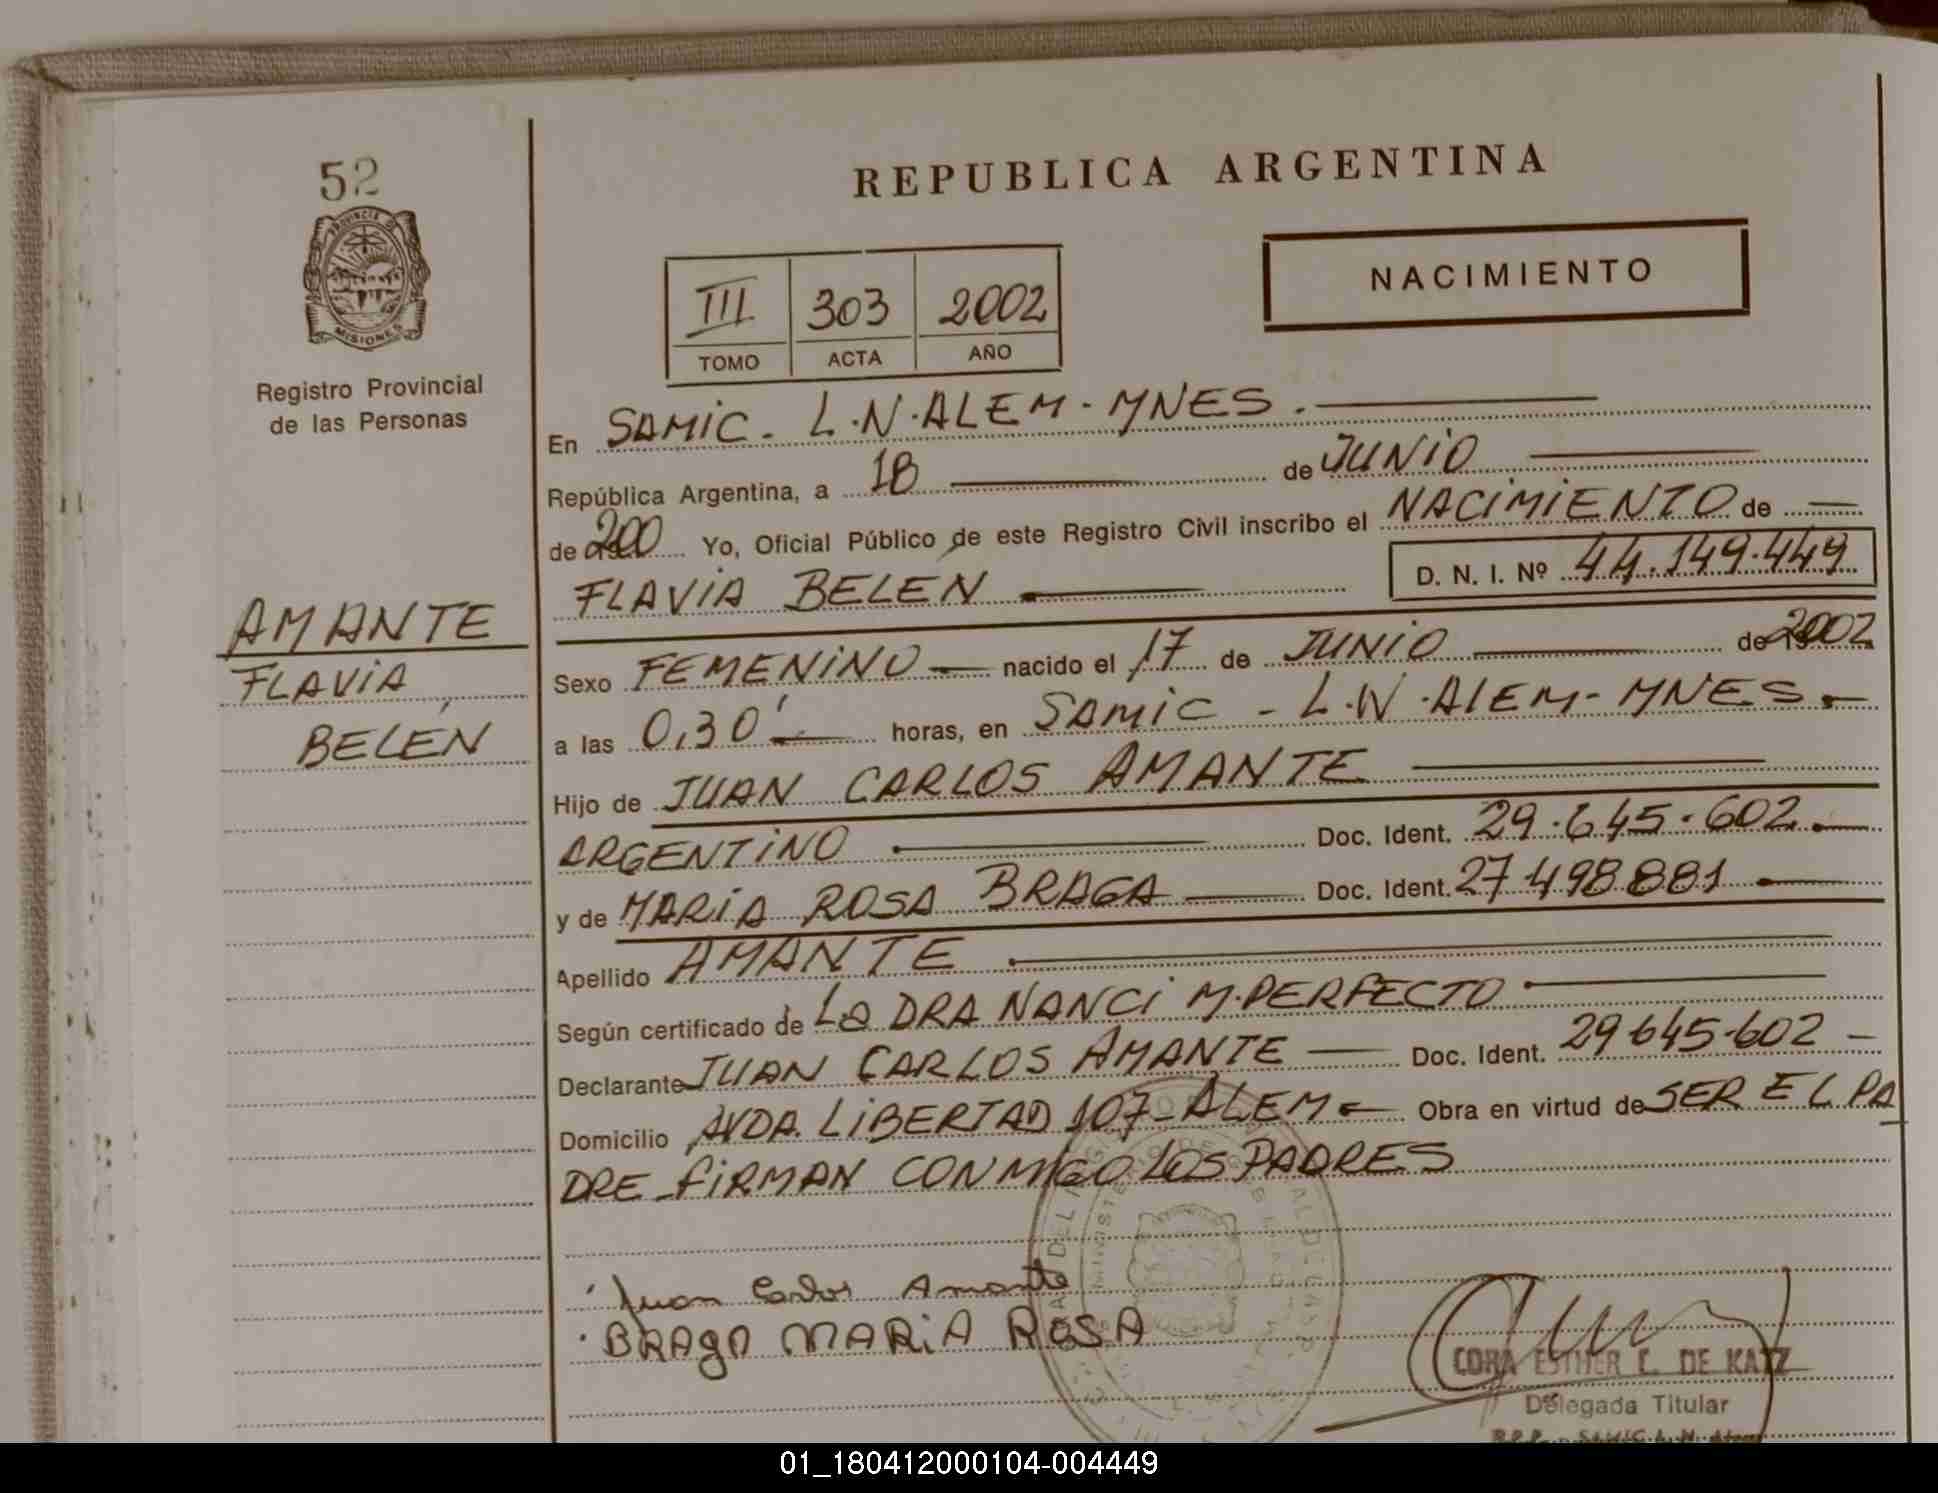 52
PROVINCIA DE
MISIONES
Registro Provincial
de las Personas
AMANTE
FLAVIA
BELÉN
REPUBLICA ARGENTINA
NACIMIENTO
III 303 2002
TOMO ACTA AÑO
En SAMIC - L.N.ALEM - MNES.
República Argentina, a 18 de JUNIO
de 200 Yo, Oficial Público de este Registro Civil inscribo el NACIMIENTO de
FLAVIA BELÉN D. N. I. Nº 44.149.449
Sexo FEMENINO nacido el 17 de JUNIO de 2002
a las 0,30' horas, en SAMIC - L.N.ALEM - MNES.
Hijo de JUAN CARLOS AMANTE
ARGENTINO Doc. Ident. 29.645.602
y de MARIA ROSA BRAGA Doc. Ident. 27498881
Apellido AMANTE
Según certificado de LA DRA NANCI M. PERFECTO
Declarante JUAN CARLOS AMANTE Doc. Ident. 29.645.602
Domicilio AVDA. LIBERTAD 107 - ALEM Obra en virtud de SER EL PA
DRE - FIRMAN CONMIGO LOS PADRES
Juan Carlos Amante
BRAGA MARIA ROSA
CORA ESTHER C. DE KATZ
Delegada Titular
R.P.P. - SAMIC L. N. Alem
01_180412000104-004449